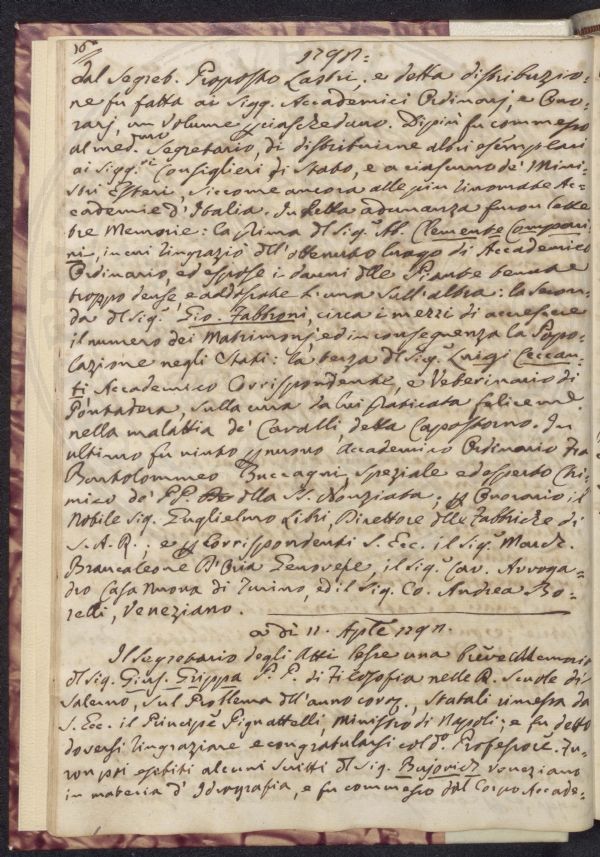 16
1791.
dal Segret. Proposto Lastri, e detta distribuzio-
ne fu fatta ai Sigg. Accademici Ordinarj, e Ono-
rarj, un volume p ciascheduno. Dipiù fu commesso
al medmo. Segretario, di distribuirne altri esemplari
ai Sigg.ri Consiglieri di Stato, e a ciascuno de' Mini-
stri Esteri, siccome ancora alle più rinomate Ac-
cademie d'Italia. In detta adunanza furon lette
tre Memorie: la prima del Sig. Ab. Clemente Compari-
ni, in cui ringraziò dell'ottenuto luogo di Accademico
Ordinario, ed espose i danni delle Piante tenute
troppo dense, e addossate l'una sull'altra: la secon-
da del Sig.r Gio. Fabbroni, circa i mezzi di accrescere
il numero dei Matrimonj, ed in conseguenza la Popo-
lazione negli Stati: la terza del Sig.r Luigi Ceccan-
ti Accademico Corrispondente, e Veterinario di
Pontadera, sulla cura da lui praticata felicemte.
nella malattia de' Cavalli, detta Capostorno. In
ultimo fu vinto p nuovo Accademico Ordinario Fra
Bartolommeo Buccagni, Speziale ed esperto Chi-
mico de' PP. della SS. Nonziata; p Onorario il
Nobile Sig. Guglielmo Libri, Direttore delle Fabbriche di
S. A. R., e p Corrispondenti S. Ecc. il Sig.r March.
Brancaleone D'Oria Genovese, il Sig.r Cav. Avvoga-
dro Casa Nuova di Torino, ed il Sig. Co. Andrea Bo-
relli, Veneziano.
a dì 11. Aple 1791.
Il Segretario degli Atti lesse una breve Memoria
del Sig. Gius. Grippa P. P. di Filosofia nelle R. Scuole di
Salerno, sul Problema dell'anno coro., statali rimessa da
S. Ecc. il Principe Pignattelli, Ministro di Napoli; e fu detto
doversi ringraziare e congratularsi col do. Professore. Fu-
ron poi esibiti alcuni scritti del Sig. Bujovich Veneziano
in materia d'Idrografia, e fu commesso dal Corpo Accade-